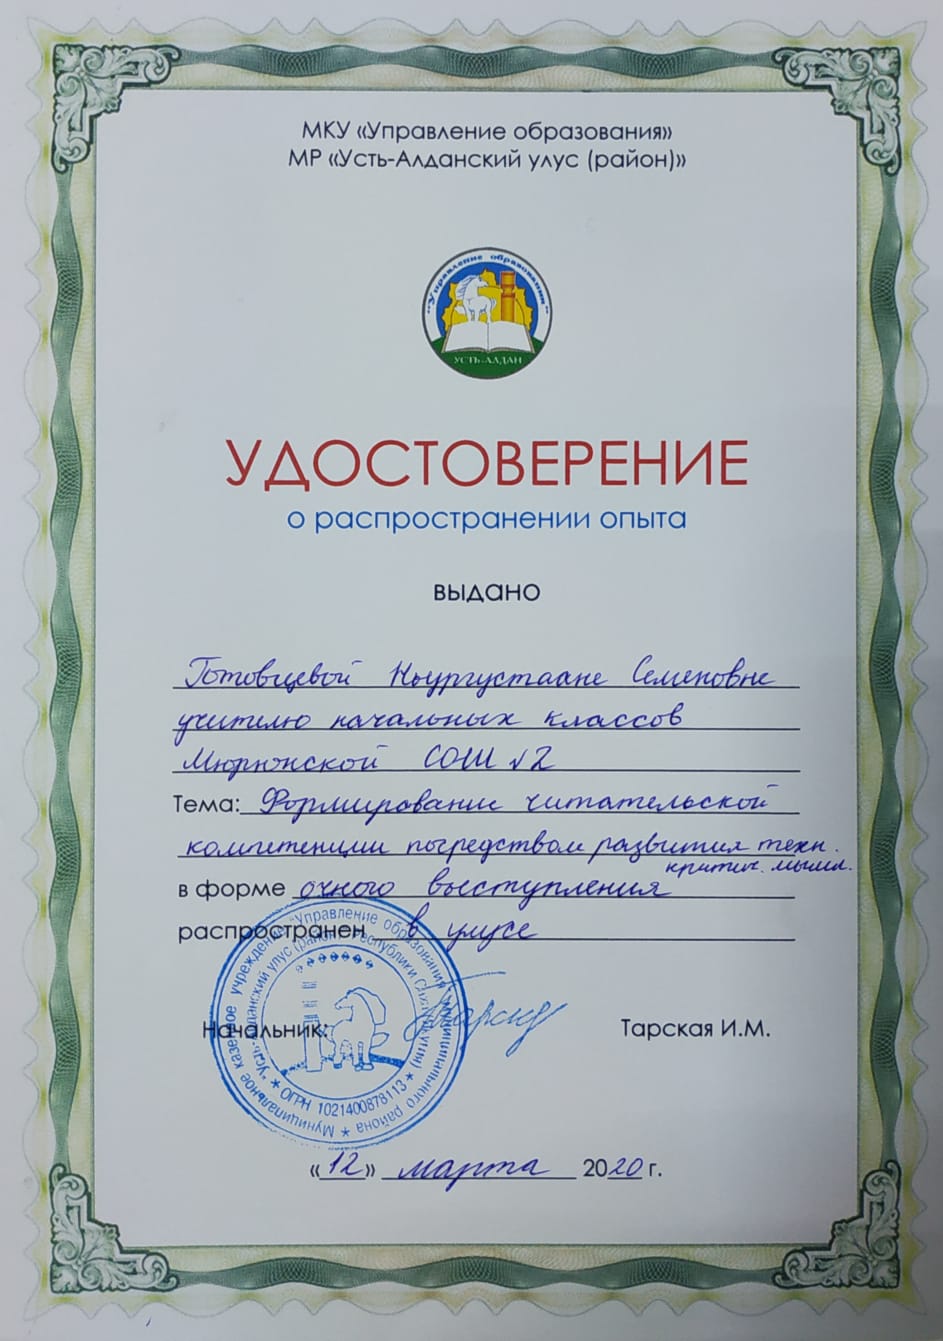 МКУ «Управление образования»
МР «Усть-Алданский улус (район)»
"Управление образования"
УСТЬ-АЛДАН
УДОСТОВЕРЕНИЕ
о распространении опыта
выдано
Готовцевой Ньургустаане Семеновне
учителю начальных классов
Мюрюнской СОШ №2
Тема: Формирование читательской
компетенции посредством развития техн.
критич. мышл.
в форме очного выступления
распространен в улусе
Начальник: Тарская И.М.
Муниципальное казенное учреждение "Управление образования" муниципального района
"Усть-Алданский улус (район)" Республики Саха (Якутия)
ОГРН 1021400878113
«12» марта 2020 г.